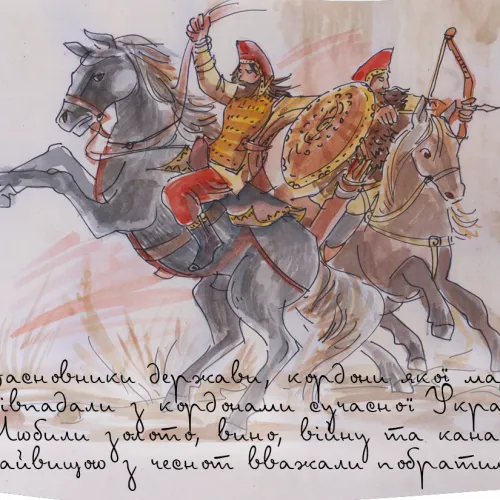 засновники держави, кордони якої ма
півпадали з кордонами сучасної Укра
Любили золото, вино, війну та кана
айвищою з чеснот вважали побратим